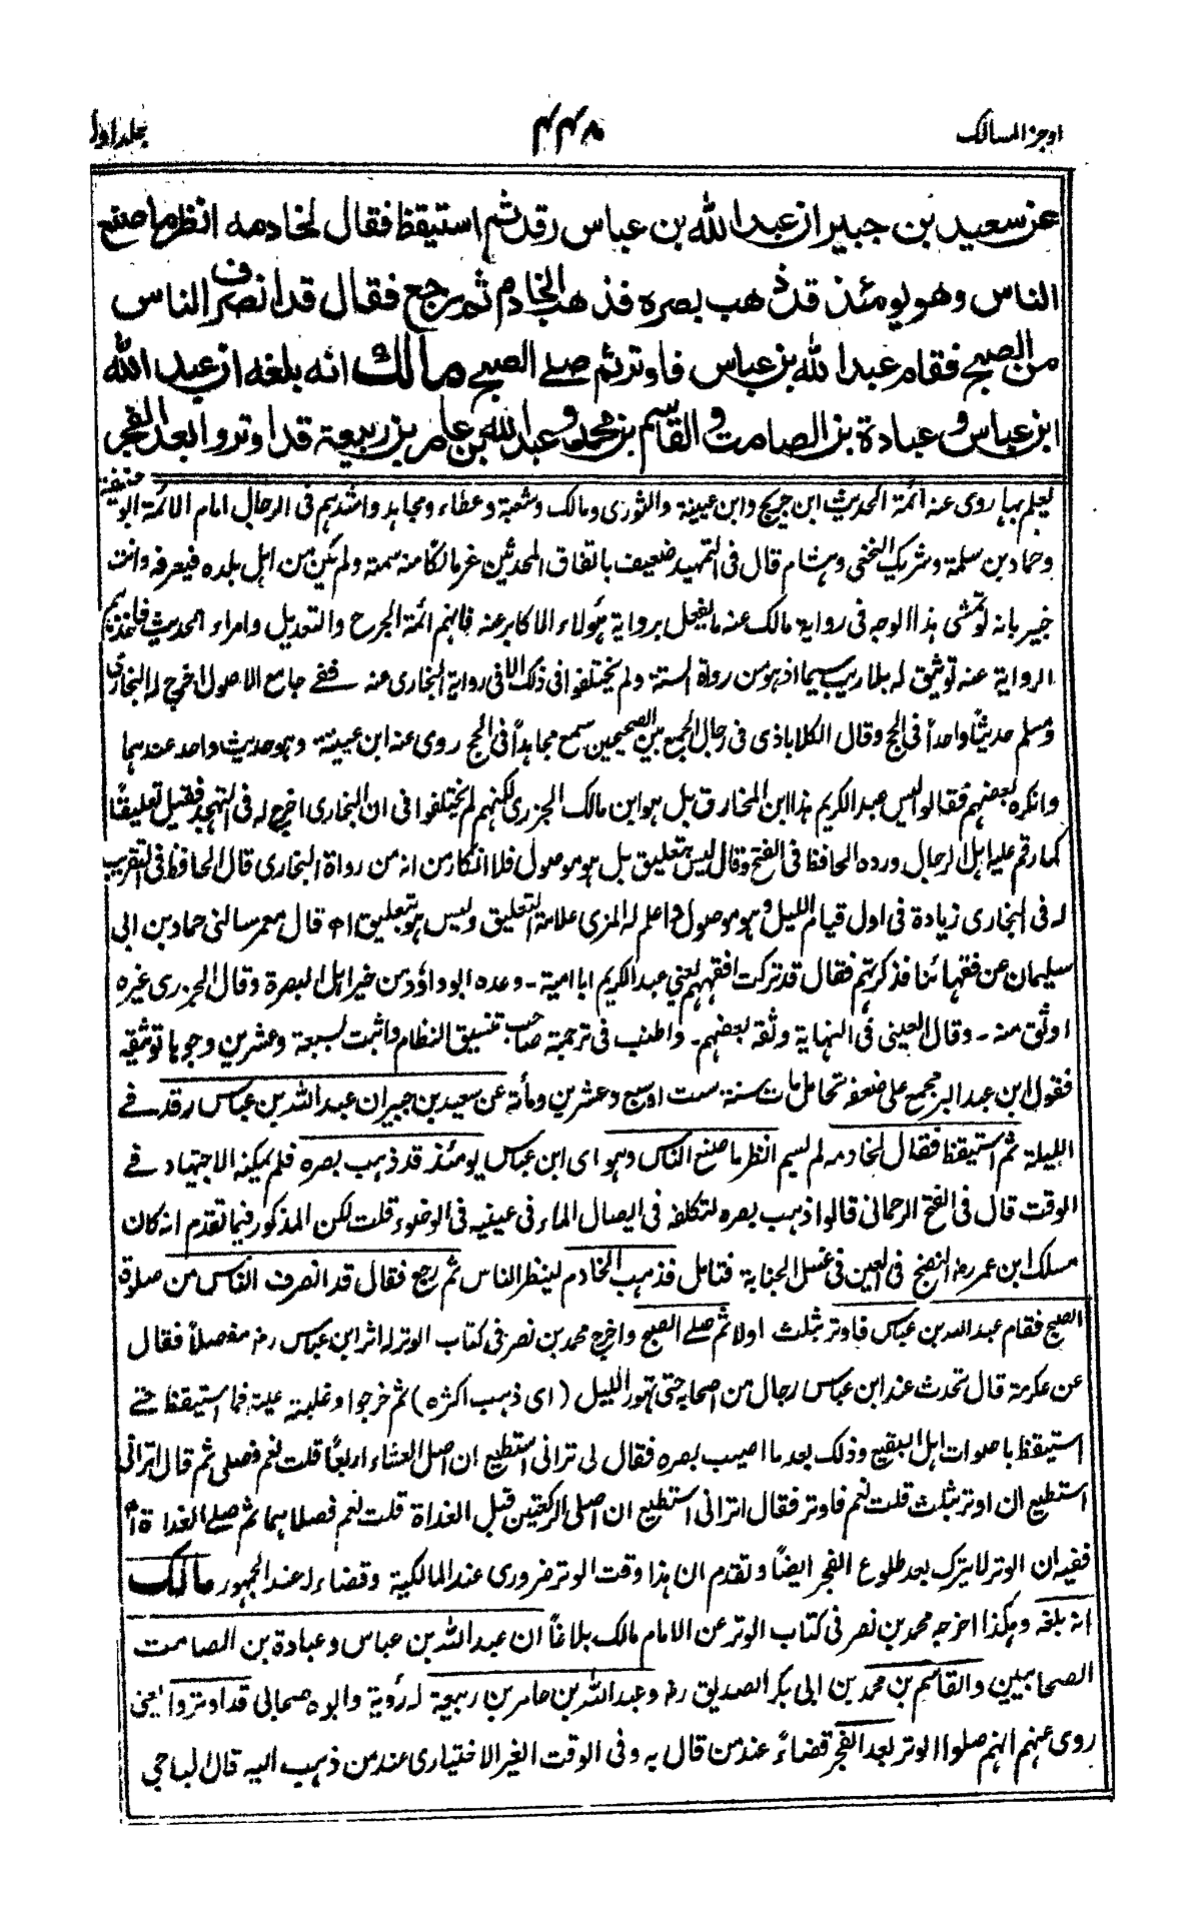 اوجز المسالك
٤٤٧
جلد اول
عن سعيد بن جبير ان عبد الله بن عباس رقد ثم استيقظ فقال لخادمه انظر ما صنع
الناس وهو يومئذ قد ذهب بصره فذهب الخادم ثم رجع فقال قد انصرف الناس
من الصبح فقام عبد الله بن عباس فاوتر ثم صلى الصبح مالك انه بلغه ان عبد الله
ابن عباس و عبادة بن الصامت و القاسم بن محمد و عبد الله بن عامر بن ربيعة قد اوتروا بعد الفجر
يعلم بهاروى عنه ائمة الحديث ابن جريج وابن عيينة والثورى ومالك وشعبة وعطاء ومجاهد واشدهم فى الرجال امام الائمة ابو حنيفة
وحماد بن سلمة وشريك النخعى وهشام قال فى التمهيد ضعيف باتفاق المحدثين غر مالكا منه سمته ولم يكن من اهل بلده فيعرفه وانت
خبير بانه لو تمشى هذا الوجه فى رواية مالك عنه ما يفعل برواية هؤلاء الاكابر عنه فانهم ائمة الجرح والتعديل وامراء الحديث فاخذهم
الرواية عنه توثيق له بلا ريب سيما اذ هو من رواة الستة ولم يختلفوا فى ذلك الا فى رواية البخارى عنه ففى جامع الاصول اخرج له البخارى
ومسلم حديثاً واحداً فى الحج وقال الكلاباذى فى رجال الجمع بين الصحيحين سمع مجاهداً فى الحج روى عنه ابن عيينة وهو حديث واحد عندهما
وانكره بعضهم فقالوا ليس عبد الكريم هذا ابن المخارق بل هو ابن مالك الجزرى لكنهم لم يختلفوا فى ان البخارى اخرج له فى التهجد فقيل تعليقاً
كما رقم عليه اهل الرجال ورده الحافظ فى الفتح وقال ليس بتعليق بل هو موصول فلا انكار من انه من رواة البخارى قال الحافظ فى التقريب
له فى البخارى زيادة فى اول قيام الليل وهو موصول واعلم له المزى علامة التعليق وليس هو بتعليق اه قال معمر سألنى حماد بن ابى
سليمان عن فقهائنا فذكرتهم فقال قد تركت افقههم يعنى عبد الكريم ابا امية - وعده ابو داؤد من خير اهل البصرة وقال الجزرى غيره
اوثق منه - وقال العينى فى النهاية وثقه بعضهم - واطنب فى ترجمته صاحب تنسيق النظام واثبت لسبعة وعشرين وجوها توثيقه
فقول ابن عبد البر مجمع على ضعفه تحامل مات سنة ست او سبع وعشرين ومأة عن سعيد بن جبير ان عبد الله بن عباس رقد فى
الليلة ثم استيقظ فقال لخادمه لم يسم انظر ما صنع الناس وهو اى ابن عباس يومئذ قد ذهب بصره فلم يمكنه الاجتهاد فى
الوقت قال فى الفتح الرحمانى قالوا ذهب بصره لتكلفه فى ايصال الماء فى عينيه فى الوضوء قلت لكن المذكور فيما تقدم انه كان
مسلك ابن عمر رضـ النضح فى العين فى غسل الجنابة فتامل فذهب الخادم لينظر الناس ثم رجع فقال قد انصرف الناس من صلوة
الصبح فقام عبد الله بن عباس فاوتر بثلث اولا ثم صلى الصبح واخرج محمد بن نصر فى كتاب الوتر له اثر ابن عباس رضـ مفصلاً فقال
عن عكرمة قال تحدث عند ابن عباس رجال من اصحابه حتى تهور الليل (اى ذهب اكثره) ثم خرجوا وغلبته عينه فما استيقظ حتى
استيقظ باصوات اهل البقيع وذلك بعد ما اصيب بصره فقال لى ترانى استطيع ان اصلى العشاء اربعاً قلت نعم فصلى ثم قال اترانى
استطيع ان اوتر بثلث قلت نعم فاوتر فقال اترانى استطيع ان اصلى الركعتين قبل الغداة قلت نعم فصلاهما ثم صلى الغداة اه
ففيه ان الوتر لا يترك بعد طلوع الفجر ايضاً وتقدم ان هذا وقت الوتر ضرورى عند المالكية وقضاء له عند الجمهور مالك
انه بلغه وهكذا اخرجه محمد بن نصر فى كتاب الوتر عن الامام مالك بلاغاً ان عبد الله بن عباس وعبادة بن الصامت
الصحابيين والقاسم بن محمد بن ابى بكر الصديق رضـ وعبد الله بن عامر بن ربيعة له رؤية وابوه صحابى قد اوتروا يعنى
روى عنهم انهم صلوا الوتر بعد الفجر قضاءً عند من قال به وفى الوقت الغير الاختيارى عند من ذهب اليه قال الباجى